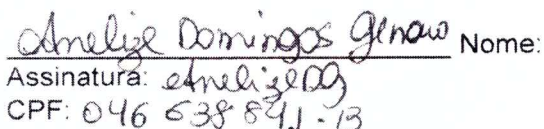 Anelize Domingos Genaro Nome:
Assinatura: AnelizeDG
CPF: 046 638 841-13